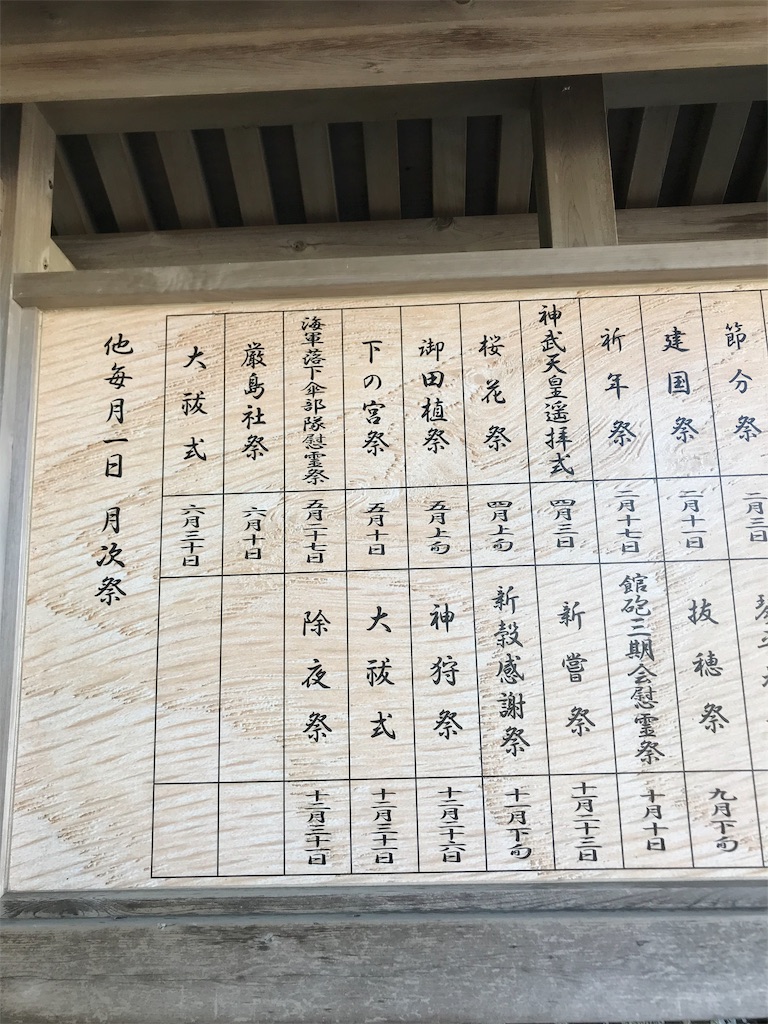 節分祭
二月三日
建国祭
二月十一日
祈年祭
二月十七日
神武天皇遥拝式
四月三日
桜花祭
四月上旬
御田植祭
五月上旬
下の宮祭
五月十日
海軍落下傘部隊慰霊祭
五月二十七日
厳島社祭
六月十日
大祓式
六月三十日
抜穂祭
九月下旬
館砲三期会慰霊祭
十月十日
新嘗祭
十一月二十三日
新穀感謝祭
十一月下旬
神狩祭
十二月二十六日
大祓式
十二月三十一日
除夜祭
十二月三十一日
他毎月一日 月次祭